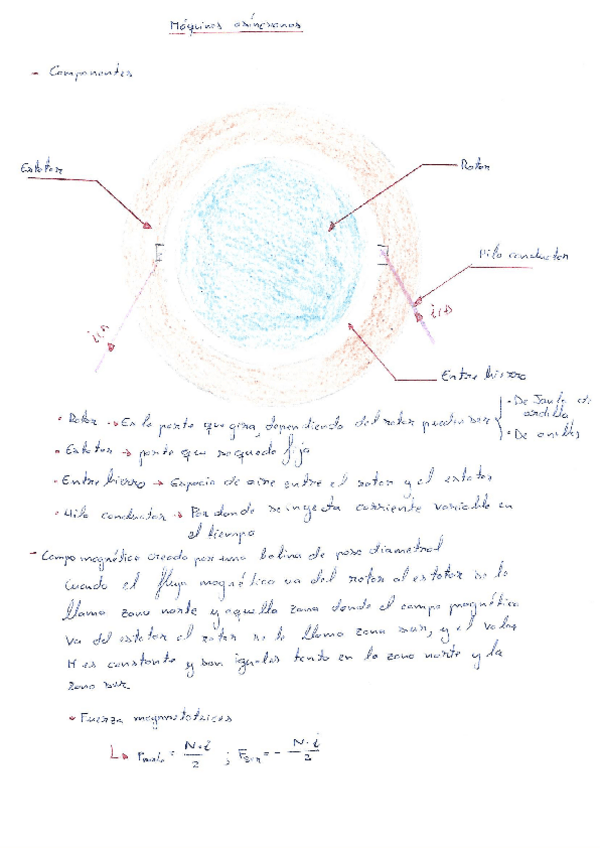 Máquinas asíncronas
- Componentes
Estator
Rotor
Hilo conductor
i(t)
i(t)
Entrehierro
• Rotor → Es la parte que gira, dependiendo del rotor puede ser
- De Jaula de
ardilla
- De anillos
• Estator → parte que se queda fija
• Entrehierro → Espacio de aire entre el rotor y el estator
• Hilo conductor → Por donde se inyecta corriente variable en
el tiempo
- Campo magnético creado por una bobina de paso diametral
Cuando el flujo magnético va del rotor al estator se le
llama zona norte y aquella zona donde el campo magnético
va del estator al rotor se le llama zona sur, y el valor
H es constante y son iguales tanto en la zona norte y la
zona sur.
• Fuerza magnetotrices
L→ F = N·i/2 ; Fsur = - N·i/2